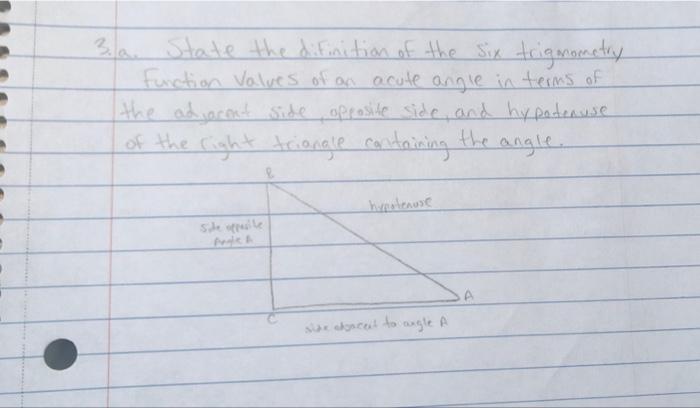 3. a. State the difinition of the six trigonometry
Function Values of an acute angle in terms of
the adjacent side, opposite side, and hypotenuse
of the right triangle containing the angle.
B
hypotenuse
Side opposite
Angle A
A
C
side adacent to angle A